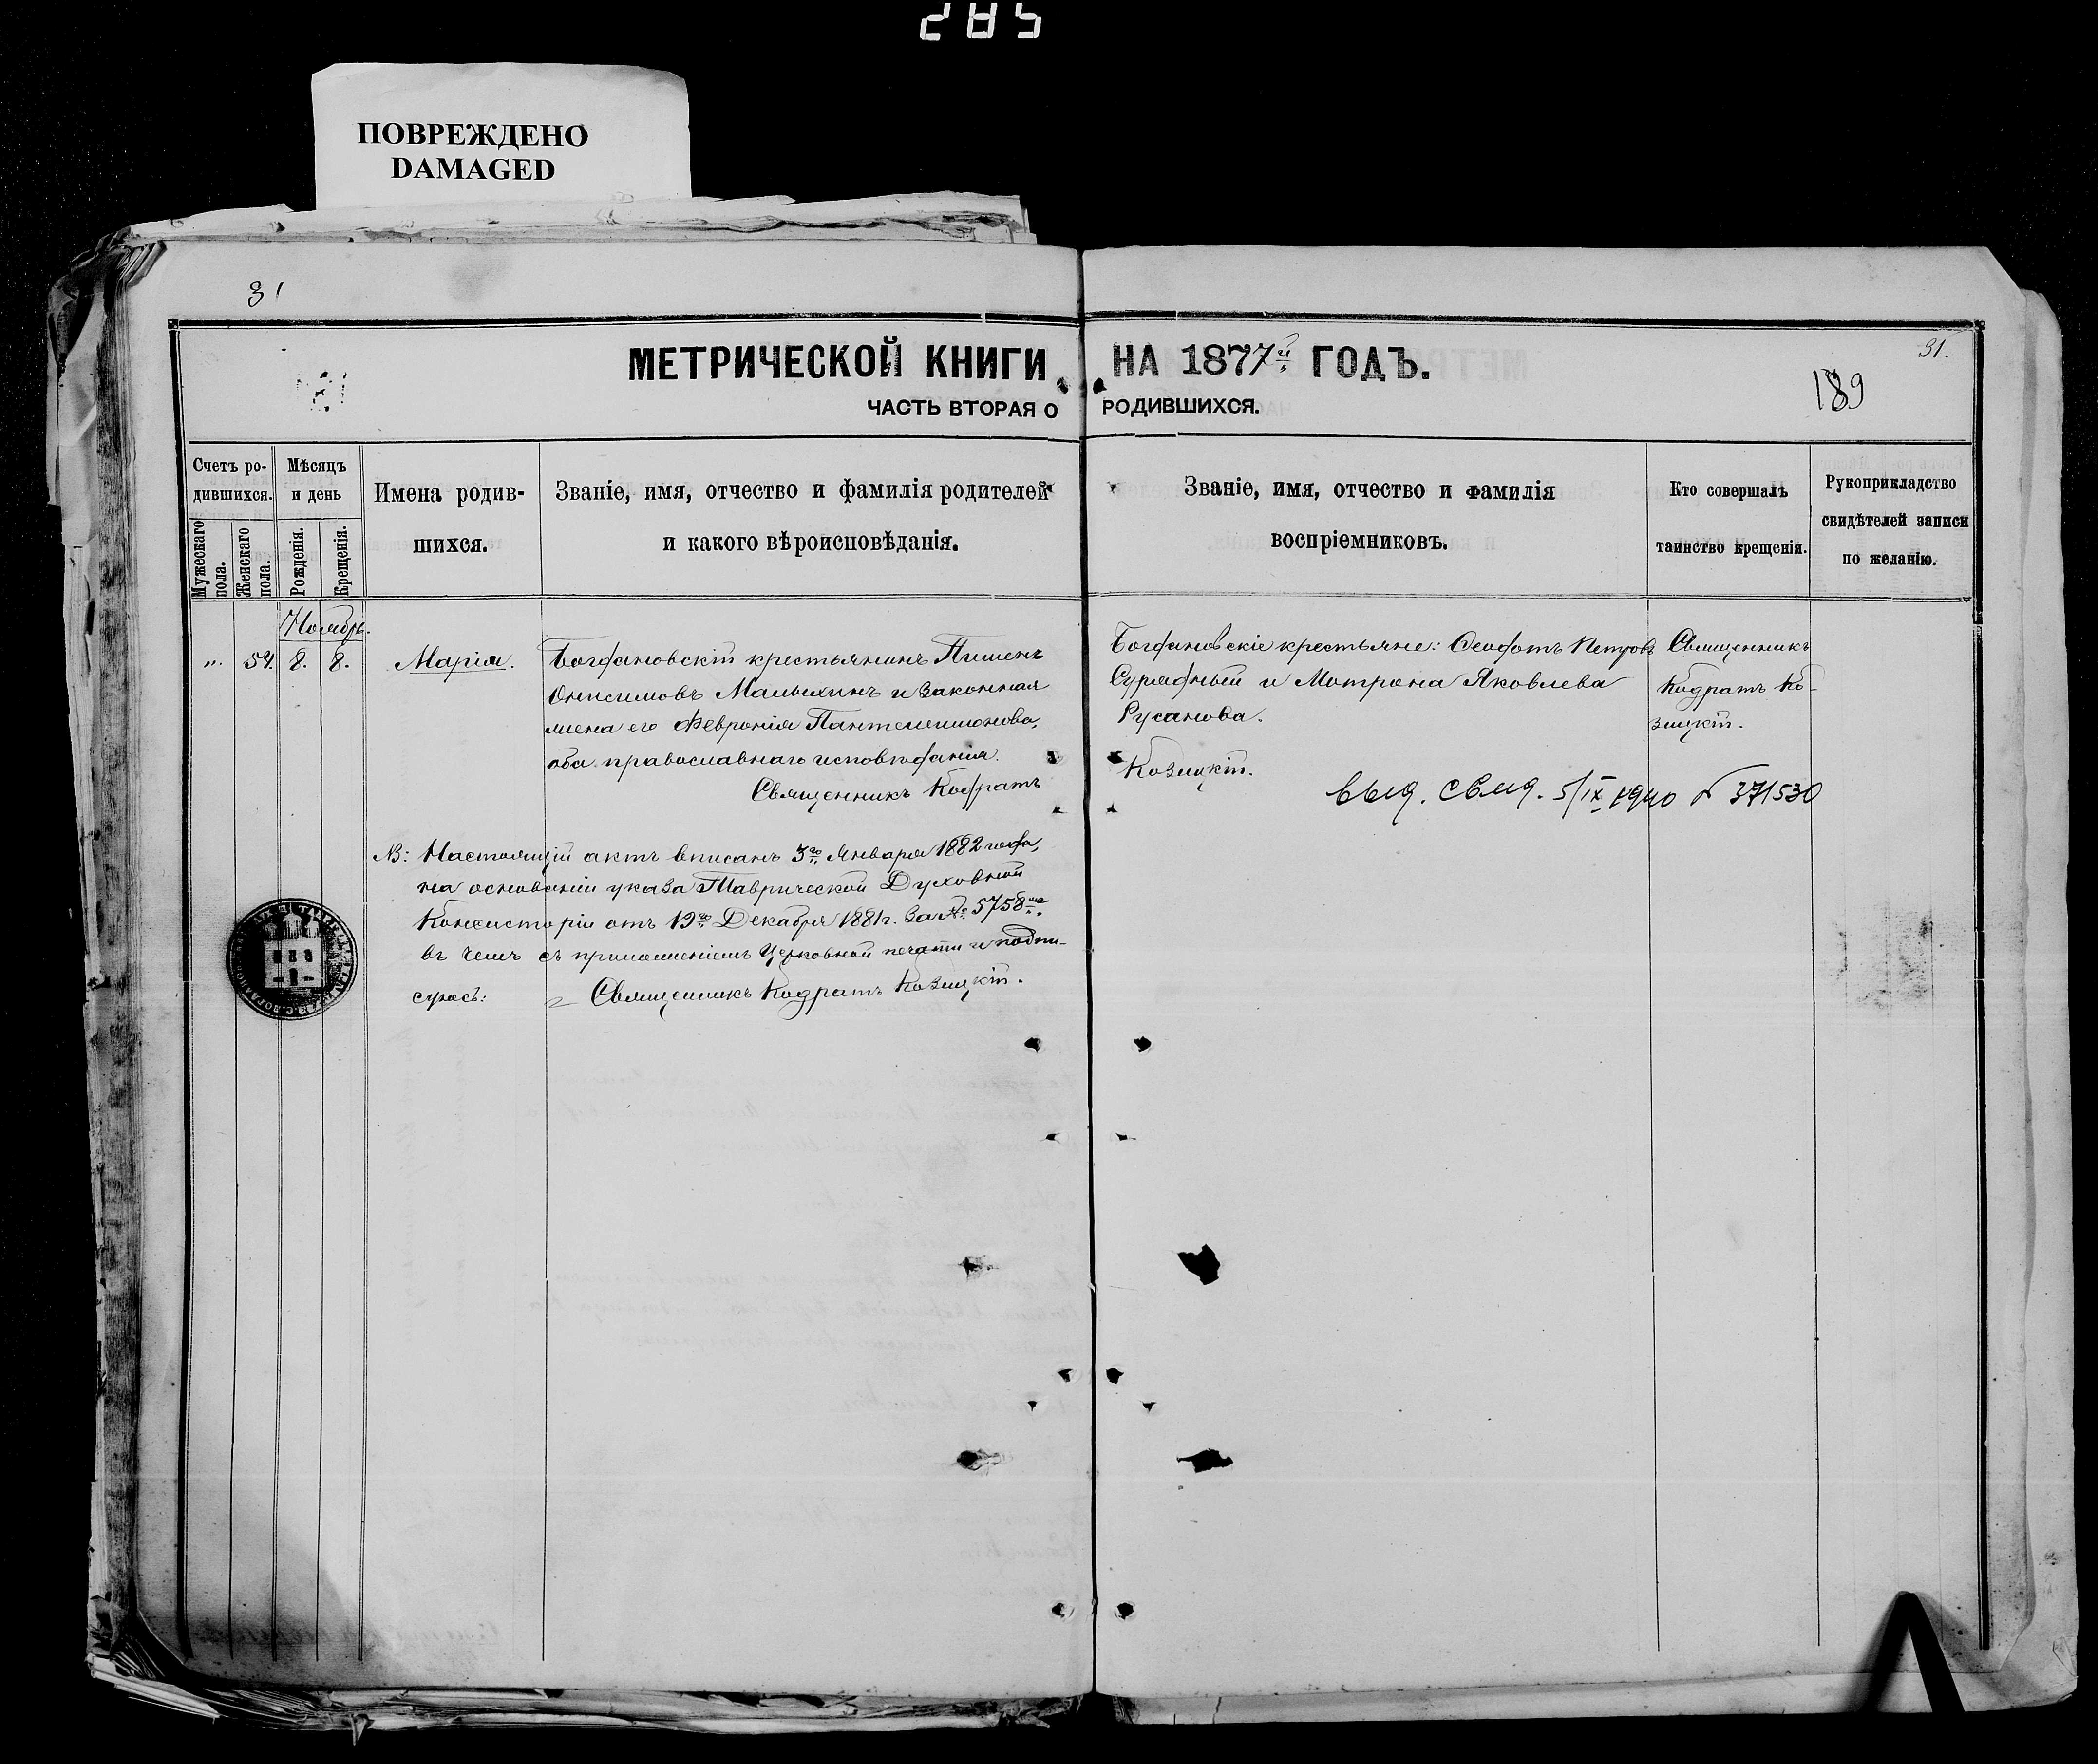 285
ПОВРЕЖДЕНО
DAMAGED
31
МЕТРИЧЕСКОЙ КНИГИ НА 1877й ГОДЪ.
31.
189
ЧАСТЬ ВТОРАЯ О РОДИВШИХСЯ.
Счетъ ро-
дившихся.
Мужескаго
пола.
Женскаго
пола.
Мѣсяцъ
и день
Рожденія.
Крещенія.
Имена родив-
шихся.
Званіе, имя, отчество и фамилія родителей
и какого вѣроисповѣданія.
Званіе, имя, отчество и фамилія
воспріемниковъ.
Кто совершалъ
таинство крещенія.
Рукоприкладство
свидѣтелей записи
по желанію.
Ноябрь.
„ 54. 8. 8.
Марія.
Богдановскій крестьянинъ Пименъ
Онисимовъ Малыхинъ и законная
жена его Февронія Пантелеимонова,
оба православнаго исповѣданія.
Священникъ Кодратъ
Богдановскіе крестьяне: Ѳеодотъ Петровъ
и Мотрона Яковлева
Русанова.
Козицкій.
Священникъ
Кодратъ Ко-
зицкій.
выд. свид. 5/IX 1940 № 371530
NB: Настоящій актъ вписанъ 3го Января 1882 года,
на основаніи указа Таврической Духовной
Консисторіи отъ 19го Декабря 1881г. за № 5758мъ,
въ чемъ съ приложеніемъ Церковной печати и подпи-
суюсь:
Священникъ Кодратъ Козицкій.